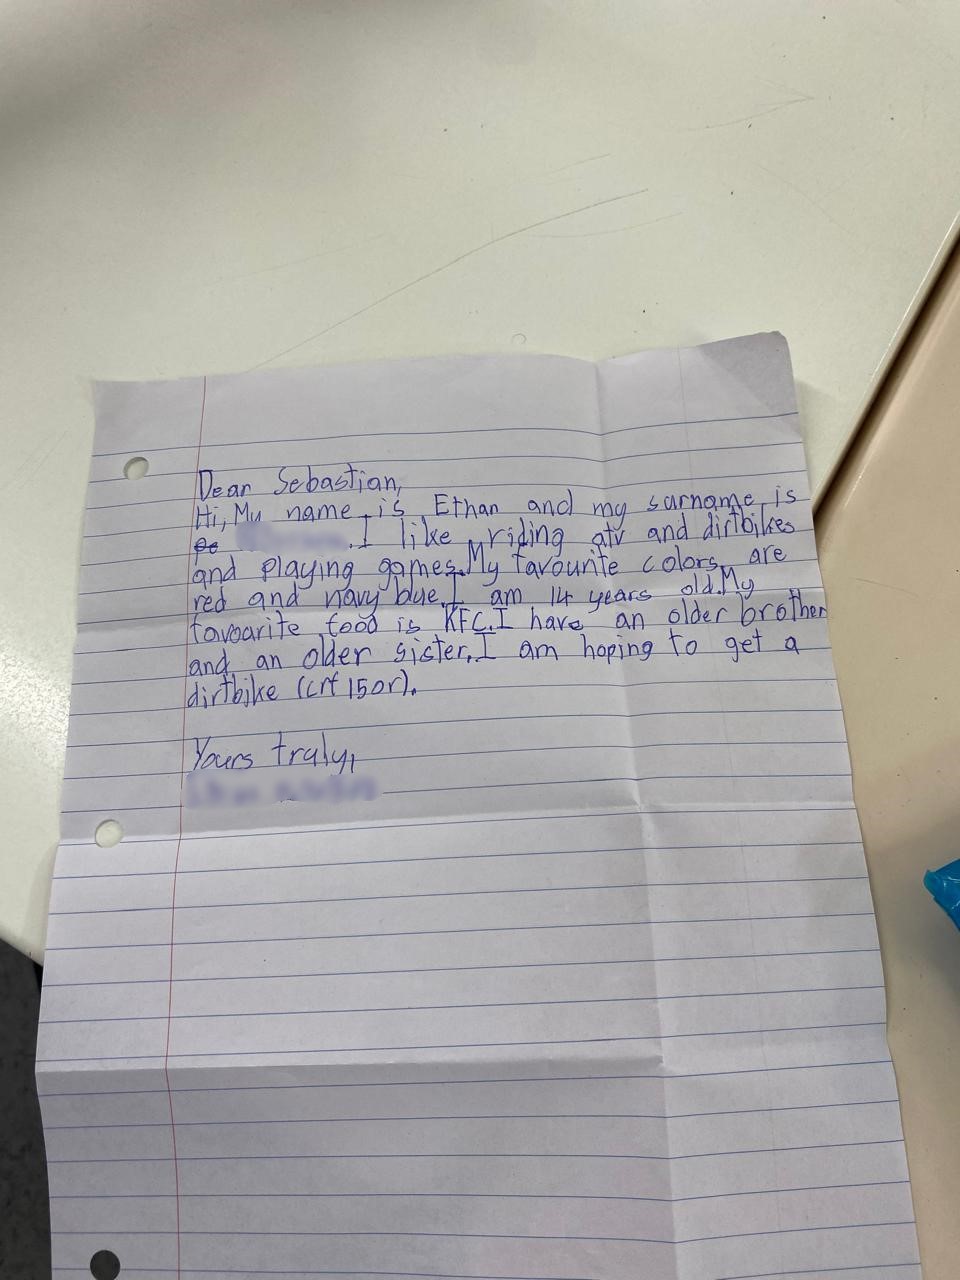 Dear Sebastian,
Hi, My name is Ethan and my surname is
I like riding atv and dirtbikes
and playing games. My favourite colors are
red and navy blue. I am 14 years old. My
favourite food is KFC. I have an older brother
and an older sister. I am hoping to get a
dirtbike (crf 150r).
Yours truly,